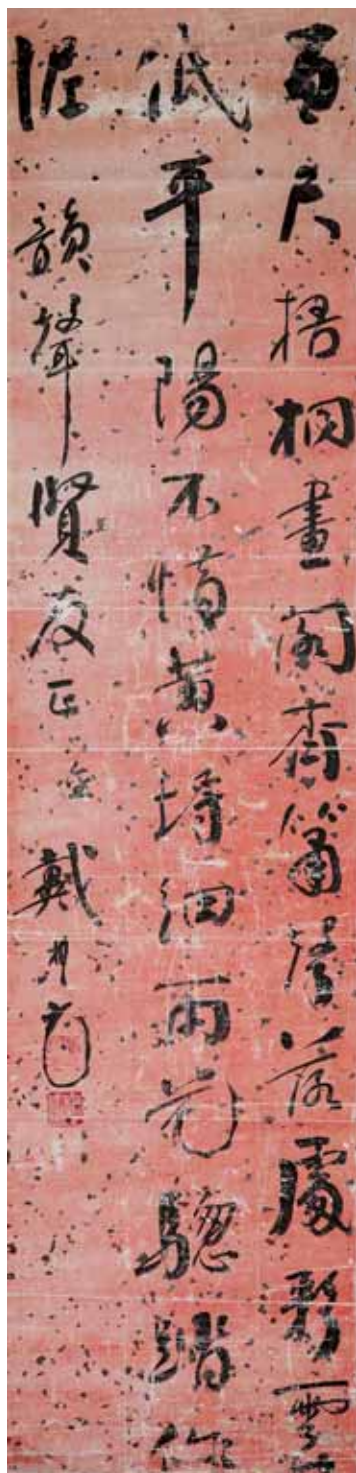 百尺梧桐畫閣齊簫聲落處彩雲
低平陽不惜黃埒細雨花驄踏作
泥 韻聲賢友正 金 戴